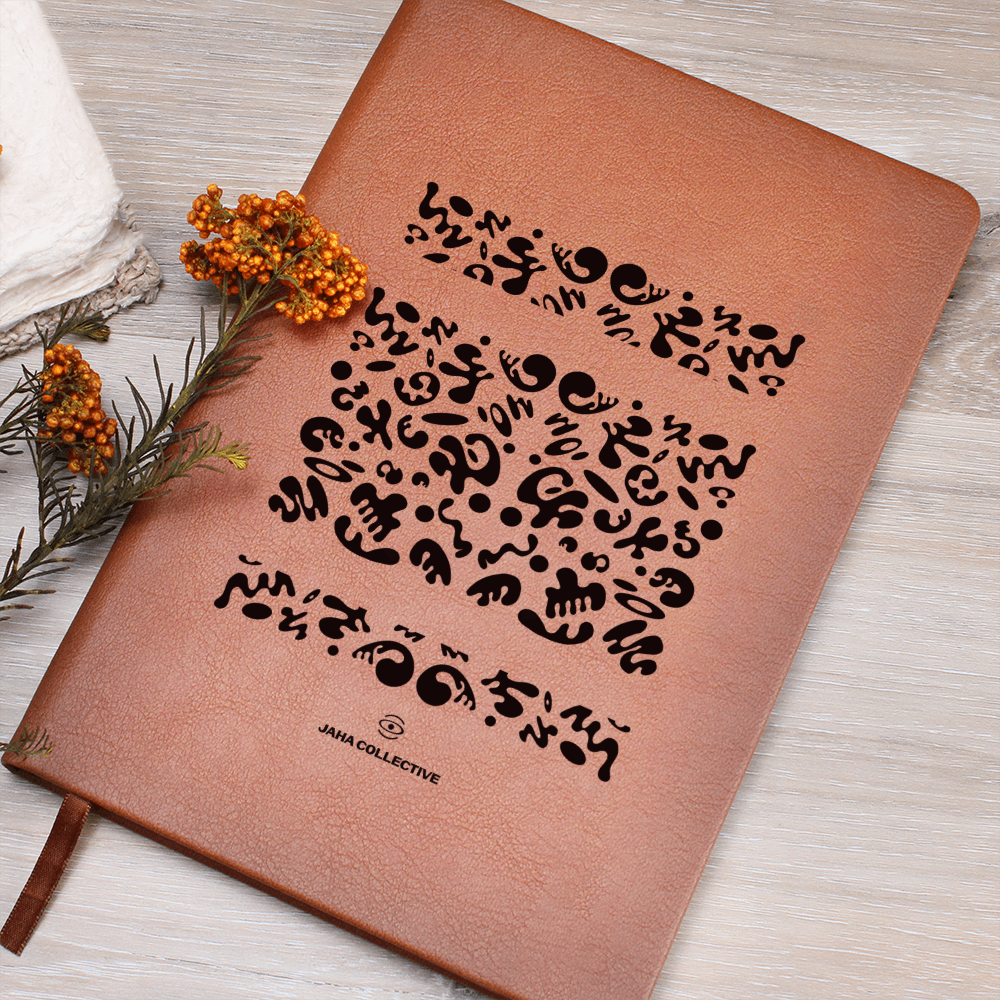 JAHA COLLECTIVE